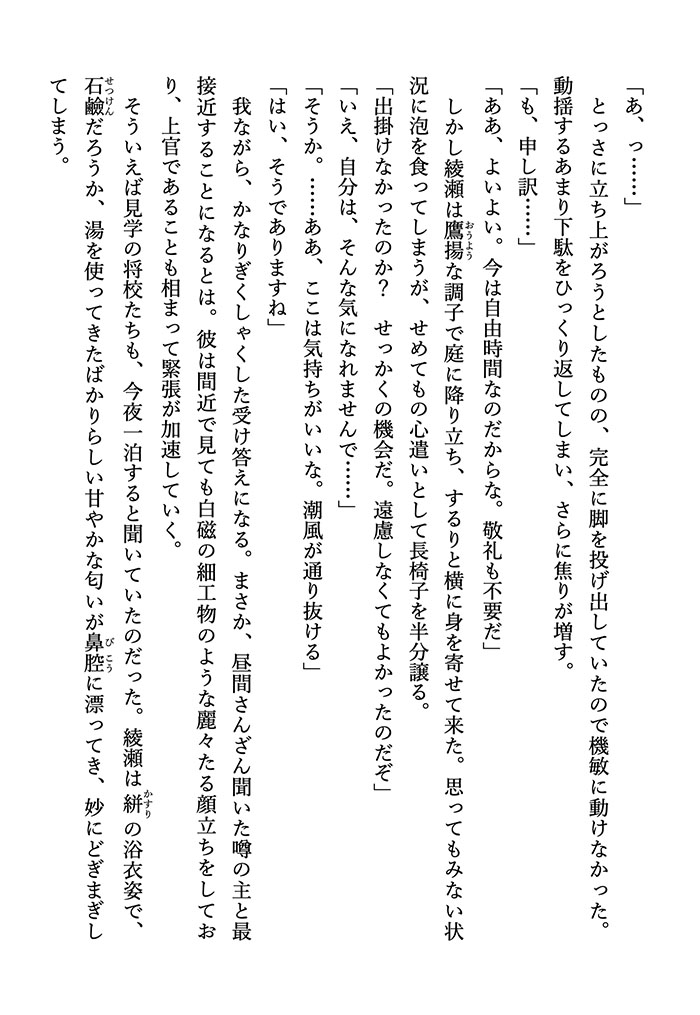 「あ、っ……」
　とっさに立ち上がろうとしたものの、完全に脚を投げ出していたので機敏に動けなかった。
動揺するあまり下駄をひっくり返してしまい、さらに焦りが増す。
「も、申し訳……」
「ああ、よいよい。今は自由時間なのだからな。敬礼も不要だ」
　しかし綾瀬は鷹揚な調子で庭に降り立ち、するりと横に身を寄せて来た。思ってもみない状
況に泡を食ってしまうが、せめてもの心遣いとして長椅子を半分譲る。
「出掛けなかったのか？　せっかくの機会だ。遠慮しなくてもよかったのだぞ」
「いえ、自分は、そんな気になれませんで……」
「そうか。……ああ、ここは気持ちがいいな。潮風が通り抜ける」
「はい、そうでありますね」
　我ながら、かなりぎくしゃくした受け答えになる。まさか、昼間さんざん聞いた噂の主と最
接近することになるとは。彼は間近で見ても白磁の細工物のような麗々たる顔立ちをしてお
り、上官であることも相まって緊張が加速していく。
　そういえば見学の将校たちも、今夜一泊すると聞いていたのだった。綾瀬は絣の浴衣姿で、
石鹼だろうか、湯を使ってきたばかりらしい甘やかな匂いが鼻腔に漂ってき、妙にどぎまぎし
てしまう。